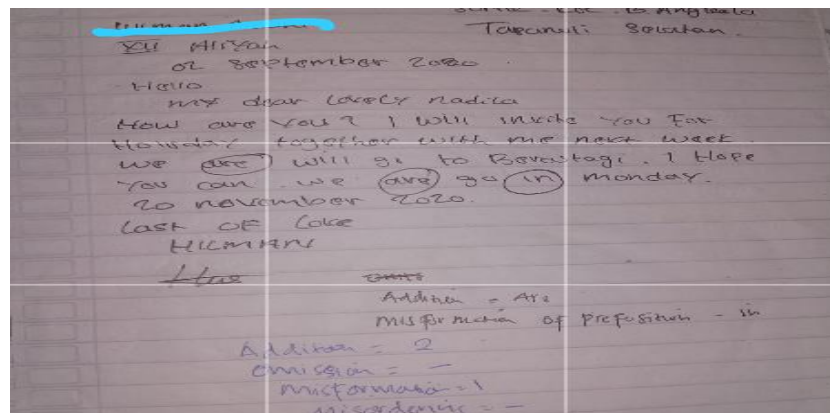 Tapanuli Selatan.
XII Aliyah
02 September 2020.
Hello
my dear Lovely nadila
How are You? I will invite You For
Holiday together with me next week.
We are will go to Berastagi. I Hope
You can. We are go in monday.
20 november 2020.
Last OF Loke
HILMAN
Addition = Are
misformation of Preposition - in
Addition = 2
omission = -
misformation = 1
misordering = -